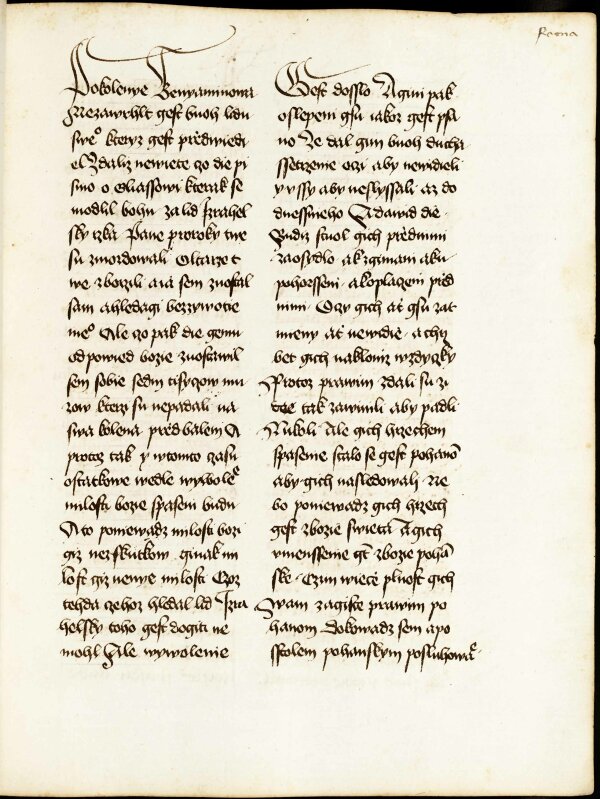 Pokolenye Benyaminowa
Nezawrhlt gest buoh lidu
sweᵒ kteryz gest przedwiedi
el Zdaliz newiete czo die pi
smo o Eliassowi kterak se
modlil bohu za lid Izrahel
sky rzka Pane proroky twe
su zmordowali Oltarze t
we zborzili a ia sem zuostal
sam a hledagi bezzywotie
meᵒ Ale czo pak die gemu
odpowied bozie zuostawil
sem sobie sedm tisyczow mu
zow kterzi su nepadali na
swa kolena przed balem A
protoz tak y w tomto czasu
ostatkowe wedle wywoleᵉ
milosti bozie spaseni budu
A to poniewadz milosti bozi
giz nez skutkow ginak mi
lost giz nenye milosti Czoz
tehda czehoz hledal lid Izra
helsky toho gest dogiti ne
mohl Ale wywolenie
Gest dosslo A gini pak
oslepeni gsu iakoz gest psa
no Ze dal gim buoh ducha
sstiepenie oczi aby newidieli
y vssy aby neslyssali az do
dnessnieho A dawid die
Budiz stuol gich przed nimi
za osydlo a k zgimani a ku
pohorsseni a k oplaczeni pred
nimi Oczy gich at gsu zat
mieny at newidie a chrz
bet gich nakloniz wzdyczky
Protoz prawim zdali su zi
dee tak zawinili aby padli
Nikoli Ale gich hrzechem
spasenie stalo se gest pohanō
aby gich nasledowali Ne
bo poniewadz gich hrzech
gest zbozie swieta A gich
vmenssenie gt zbozie pohā
ske Czim wiecze plnost gich
Wam zagiste prawim po
hanom Dokowadz sem apo
sstolem pohanskym posluhowaᵉ